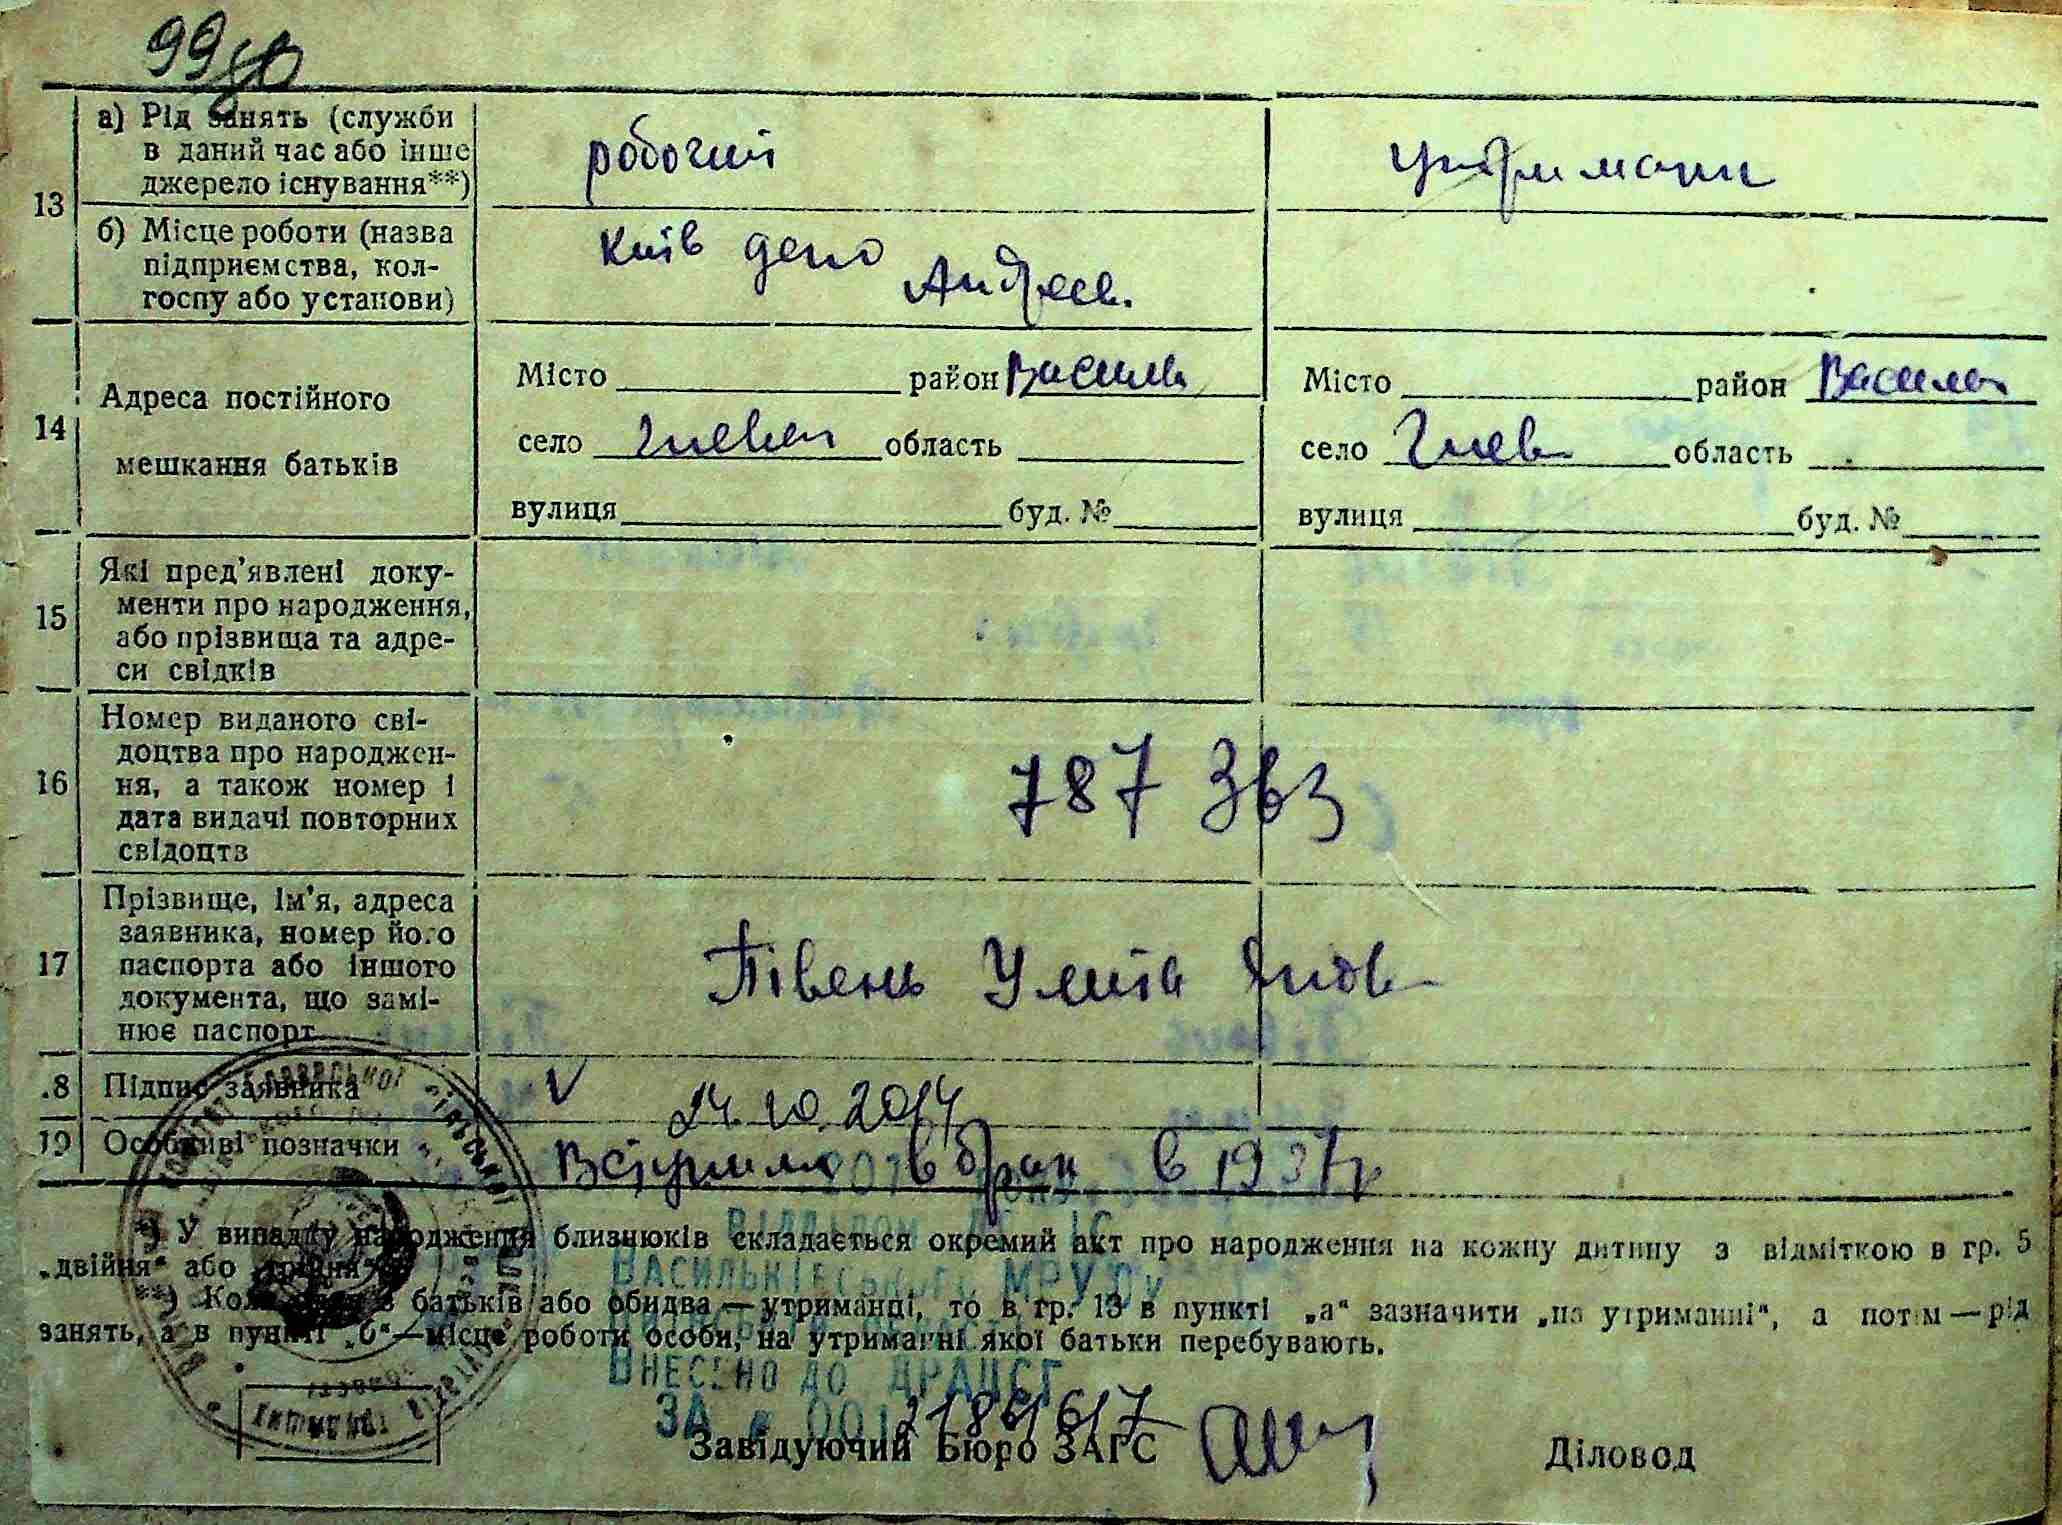 99
13
а) Рід занять (служби
в даний час або інше
джерело існування**)
робочий
утриманн
б) Місце роботи (назва
підприємства, кол-
госпу або установи)
Київ депо
Андреев.
14
Адреса постійного
мешкання батьків
Місто район Василь
село область
вулиця буд. №
Місто район Васильк
село область
вулиця буд. №
15
Які пред'явлені доку-
менти про народження,
або прізвища та адре-
си свідків
16
Номер виданого сві-
доцтва про народжен-
ня, а також номер і
дата видачі повторних
свідоцтв
787 363
17
Прізвище, ім'я, адреса
заявника, номер його
паспорта або іншого
документа, що замі-
нює паспорт
Півень Уляна Яков
.8 Підпис заявника
V 24.10.2014
19 Особливі позначки
Вступила в брак в 1937 г
*) У випадку народження близнюків складається окремий акт про народження на кожну дитину з відміткою в гр. 5
„двійня“ або „трійня“
**) Коли один з батьків або обидва — утриманці, то в гр. 13 в пункті „а“ зазначити „на утриманні“, а потім — рід
занять, а в пункті „б“ — місце роботи особи, на утриманні якої батьки перебувають.
ВІДДІЛОМ ДРАЦС
ВАСИЛЬКІВСЬКОГО МРУЮ
ВНЕСЕНО ДО ДРАЦСГ
ЗА № 00121861617
Завідуючий Бюро ЗАГС
Діловод